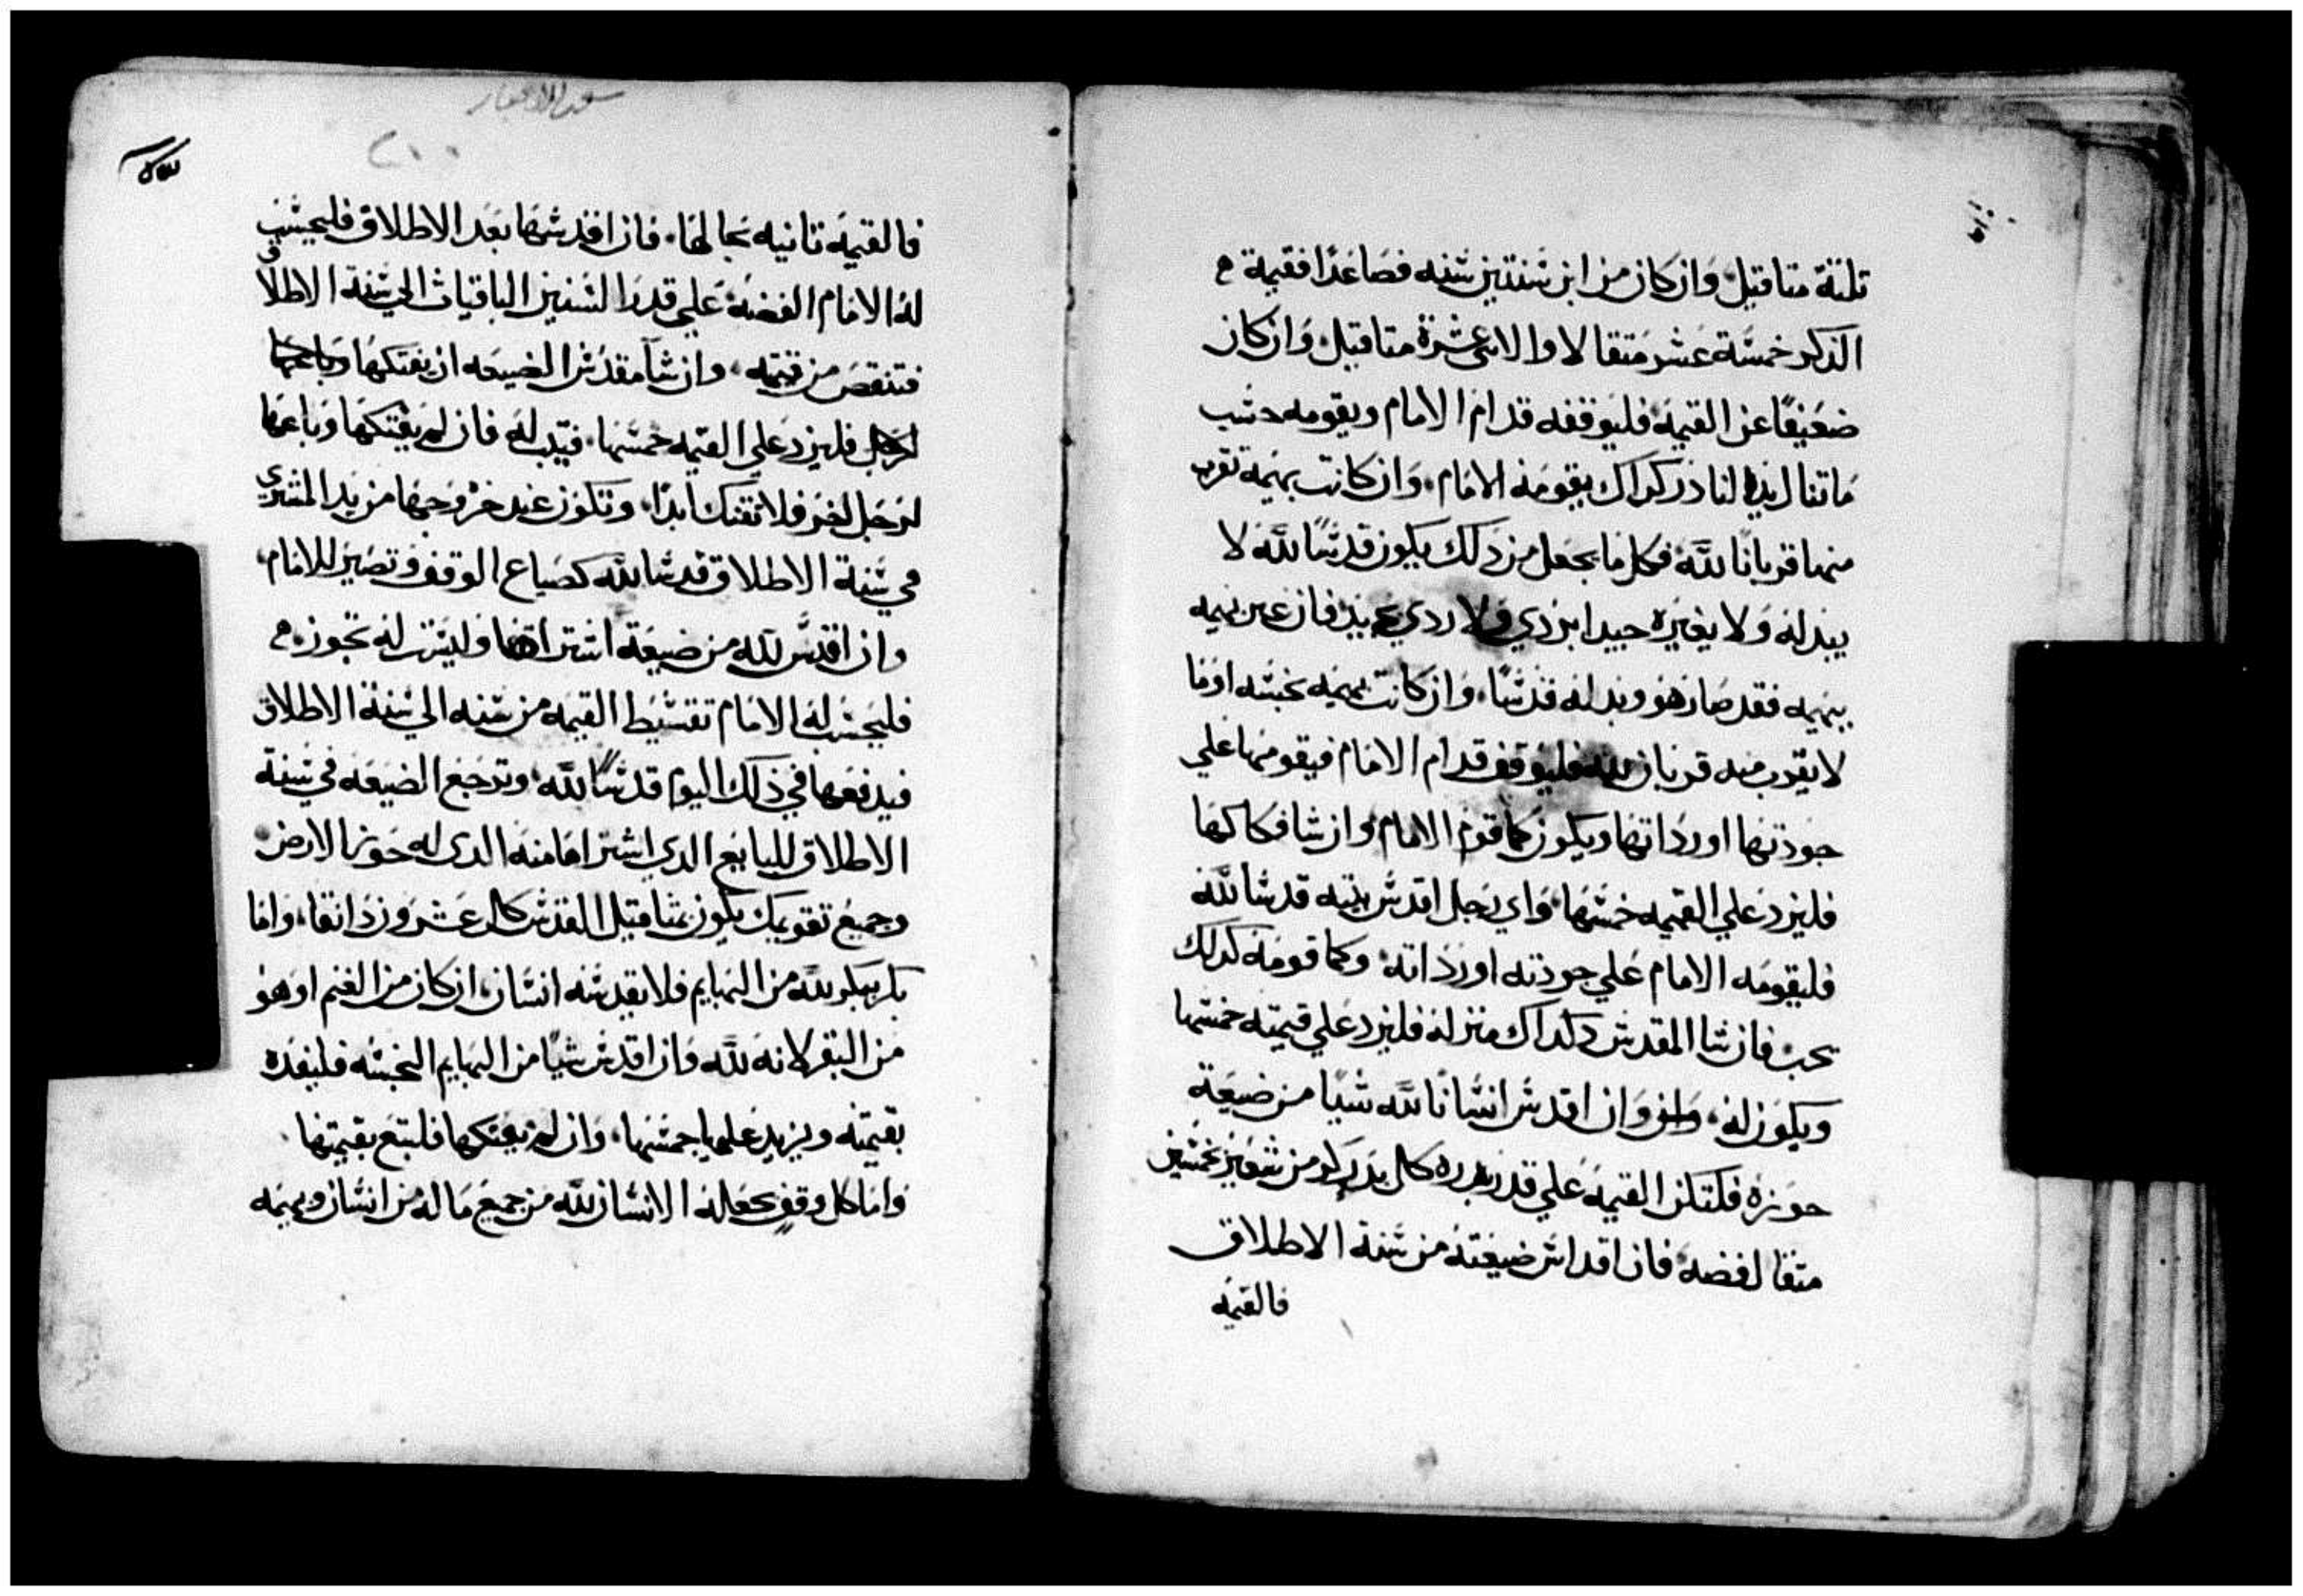 تلتة متاقيل وان كان من ابن ستين سنه فصاعدًا فقيمة
الذكر خمسة عشر متقالا والانثى عشرة متاقيل وان كان
ضعيفًا عن القيمه فليوقفه قدام الامام ويقومه حسب
ماتنال يد الناذر كذاك يقومه الامام وان كانت بهيمة تقرب
منها قربانًا لله فكل ما يجعل من ذلك يكون قدسًا لله لا
يبدله ولا يغيره جيدا بردي ولا ردي بجيد فان غير بهيمه
ببهيمه فقد صار هو وبدله قدسًا وان كانت بهيمه نجسه اوما
لا يقرب منه قربان لله فليوقف قدام الامام فيقومها علي
جودتها او رداتها ويكون كما قوم الامام وان شا فكاكها
فليزد علي القيمه خمسها واي رجل اقدس بيته قدسا لله
فليقومه الامام علي جودته او رداته وكما قومه كذلك
يجب فان شا المقدس فكاك منزله فليزد علي قيمته خمسها
ويكون له وان اقدس انسانًا لله شيًا من ضيعة
حوزه فلتكن القيمه علي قدر بدره كل بدر كر من شعير بخمسين
متقال فضه فان اقداس ضيعته من سنة الاطلاق
فالقيمه
٢٠٠
فالقيمه تانيه بحالها فان اقدسها بعد الاطلاق فليحسب
له الامام الفضه علي قدر السنين الباقيات الي سنة الاطلاق
فتنقص من قيمته وان شا مقدس الضيعه ان يفتكها
فليزد علي القيمه خمسها فيتب له فان لم يفتكها وباعها
لرجل اخر فلا تفتك ابدًا وتكون عند خروجها من يد المشتري
في سنة الاطلاق قدسا لله كضياع الوقف وتصير للامام
وان اقدس لله من ضيعة اشتراها وليست له تجوز
فليحسب له الامام تقسيط القيمه من سنه الي سنة الاطلاق
فيدفعها في ذلك اليوم قدسًا لله وترجع الضيعه في سنة
الاطلاق للبايع الدي اشتراها منه الدي له حوز الارض
وجميع تقويمك يكون بمثاقيل القدس كل عشرون دانقا واما
بكر يبكر لله من البهايم فلا يقدسه انسان ان كان من الغنم او هو
من البقر لانه لله وان اقدس شيًا من البهايم النجسه فليفده
بقيمته ويزيد عليها خمسها وان لم يفتكها فلتبع بقيمتها
واما كل وقف يجعله الانسان لله من جميع ماله من انسان وبهيمه